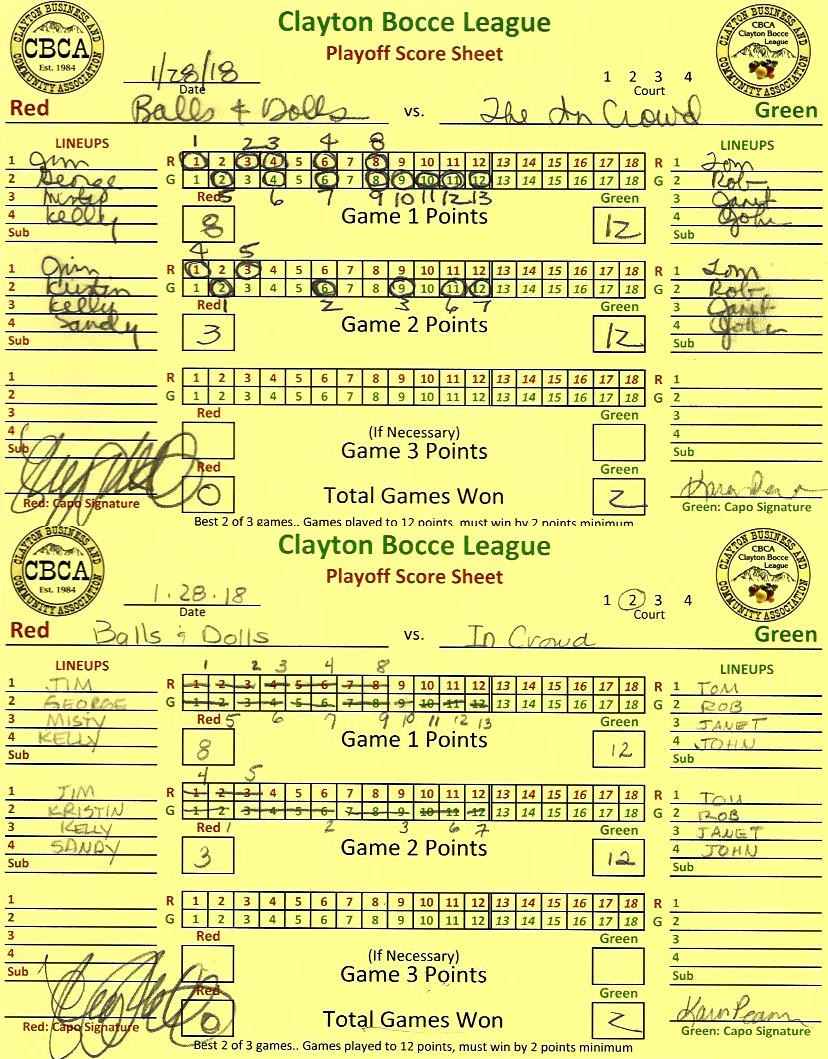 Clayton Bocce League
Playoff Score Sheet
CLAYTON BUSINESS AND COMMUNITY ASSOCIATION
CBCA
Est. 1984
CLAYTON BUSINESS AND COMMUNITY ASSOCIATION
CBCA
Clayton Bocce
League
1/28/18
Date
1 2 3 4
Court
Red Balls & Dolls vs. The In Crowd Green
LINEUPS
1 Jim
2 George
3 Misty
4 Kelly
Sub
1 2 3 4 8
R 1 2 3 4 5 6 7 8 9 10 11 12 13 14 15 16 17 18 R
G 1 2 3 4 5 6 7 8 9 10 11 12 13 14 15 16 17 18 G
5 6 7 9 10 11 12 13
Red Game 1 Points Green
8 12
LINEUPS
1 Tom
2 Rob
3 Janet
4 John
Sub
1 Jim
2 Kristin
3 Kelly
4 Sandy
Sub
4 5
R 1 2 3 4 5 6 7 8 9 10 11 12 13 14 15 16 17 18 R
G 1 2 3 4 5 6 7 8 9 10 11 12 13 14 15 16 17 18 G
1 2 3 6 7
Red Game 2 Points Green
3 12
1 Tom
2 Rob
3 Janet
4 John
Sub
1
2
3
4
Sub
R 1 2 3 4 5 6 7 8 9 10 11 12 13 14 15 16 17 18 R
G 1 2 3 4 5 6 7 8 9 10 11 12 13 14 15 16 17 18 G
Red (If Necessary) Green
Game 3 Points
1
2
3
4
Sub
Red Total Games Won Green
0 2
Red: Capo Signature
Green: Capo Signature
Best 2 of 3 games.. Games played to 12 points, must win by 2 points minimum
Clayton Bocce League
Playoff Score Sheet
CLAYTON BUSINESS AND COMMUNITY ASSOCIATION
CBCA
Est. 1984
CLAYTON BUSINESS AND COMMUNITY ASSOCIATION
CBCA
Clayton Bocce
League
1.28.18
Date
1 2 3 4
Court
Red Balls & Dolls vs. In Crowd Green
LINEUPS
1 JIM
2 GEORGE
3 MISTY
4 KELLY
Sub
1 2 3 4 8
R 1 2 3 4 5 6 7 8 9 10 11 12 13 14 15 16 17 18 R
G 1 2 3 4 5 6 7 8 9 10 11 12 13 14 15 16 17 18 G
5 6 7 9 10 11 12 13
Red Game 1 Points Green
8 12
LINEUPS
1 TOM
2 ROB
3 JANET
4 JOHN
Sub
1 JIM
2 KRISTIN
3 KELLY
4 SANDY
Sub
4 5
R 1 2 3 4 5 6 7 8 9 10 11 12 13 14 15 16 17 18 R
G 1 2 3 4 5 6 7 8 9 10 11 12 13 14 15 16 17 18 G
1 2 3 6 7
Red Game 2 Points Green
3 12
1 TOM
2 ROB
3 JANET
4 JOHN
Sub
1
2
3
4
Sub
R 1 2 3 4 5 6 7 8 9 10 11 12 13 14 15 16 17 18 R
G 1 2 3 4 5 6 7 8 9 10 11 12 13 14 15 16 17 18 G
Red (If Necessary) Green
Game 3 Points
1
2
3
4
Sub
Red Total Games Won Green
0 2
Red: Capo Signature
Green: Capo Signature
Best 2 of 3 games.. Games played to 12 points, must win by 2 points minimum